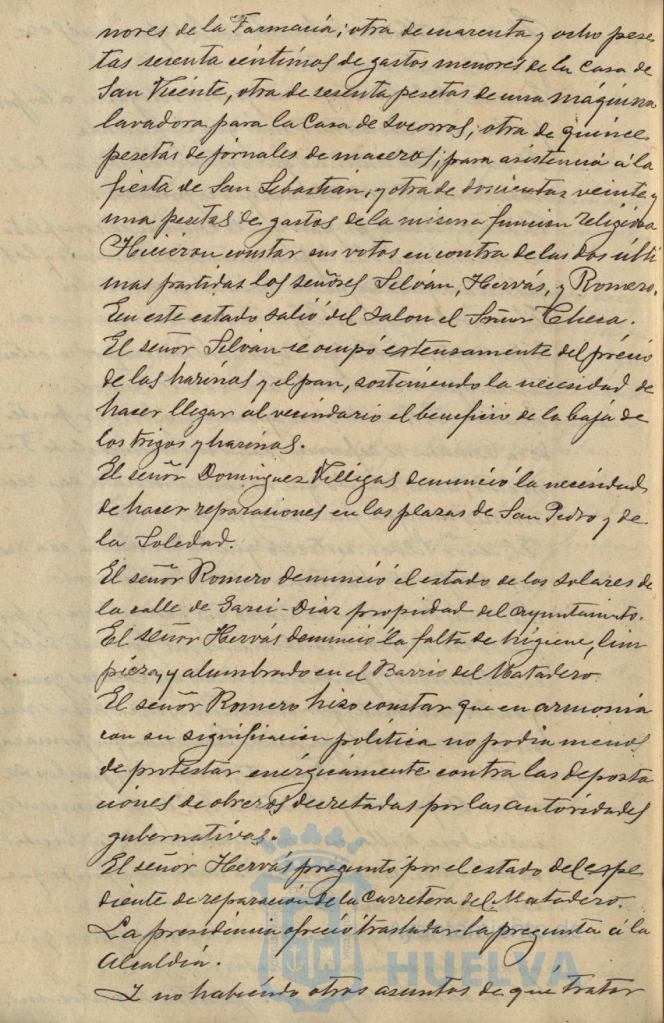 nores de la Farmacia; otra de cuarenta y ocho pese
tas sesenta céntimos de gastos menores de la Casa de
San Vicente, otra de sesenta pesetas de una máquina
lavadora para la Casa de Socorros; otra de quince
pesetas de jornales de maceros; para asistencia á la
fiesta de San Sebastián, y otra de doscientas veinte y
una pesetas de gastos de la misma funcion religiosa
Hicieron constar sus votos en contra de las dos últi
mas partidas los señores Selván, Hervás, y Romero.
En este estado salió del salon el Señor Checa.
El señor Selván se ocupó extensamente del precio
de las harinas y el pan, sosteniendo la necesidad de
hacer llegar al vecindario el beneficio de la baja de
los trigos y harinas.
El señor Dominguez Villegas denunció la necesidad
de hacer reparaciones en las plazas de San Pedro y de
la Soledad.
El señor Romero denunció el estado de los solares de
la calle de Garci-Diaz propiedad del Ayuntamiento.
El señor Hervás denunció la falta de higiene, lim
pieza, y alumbrado en el Barrio del Matadero.
El señor Romero hizo constar que en armonia
con su significacion política no podia menos
de protestar enérgicamente contra las deporta
ciones de obreros decretadas por las autoridades
gubernativas.
El señor Hervás preguntó por el estado del expe
diente de reparación de la Carretera del Matadero.
La presidencia ofreció trasladar la pregunta á la
Alcaldía.
HUELVA
Y no habiendo otros asuntos de qué tratar